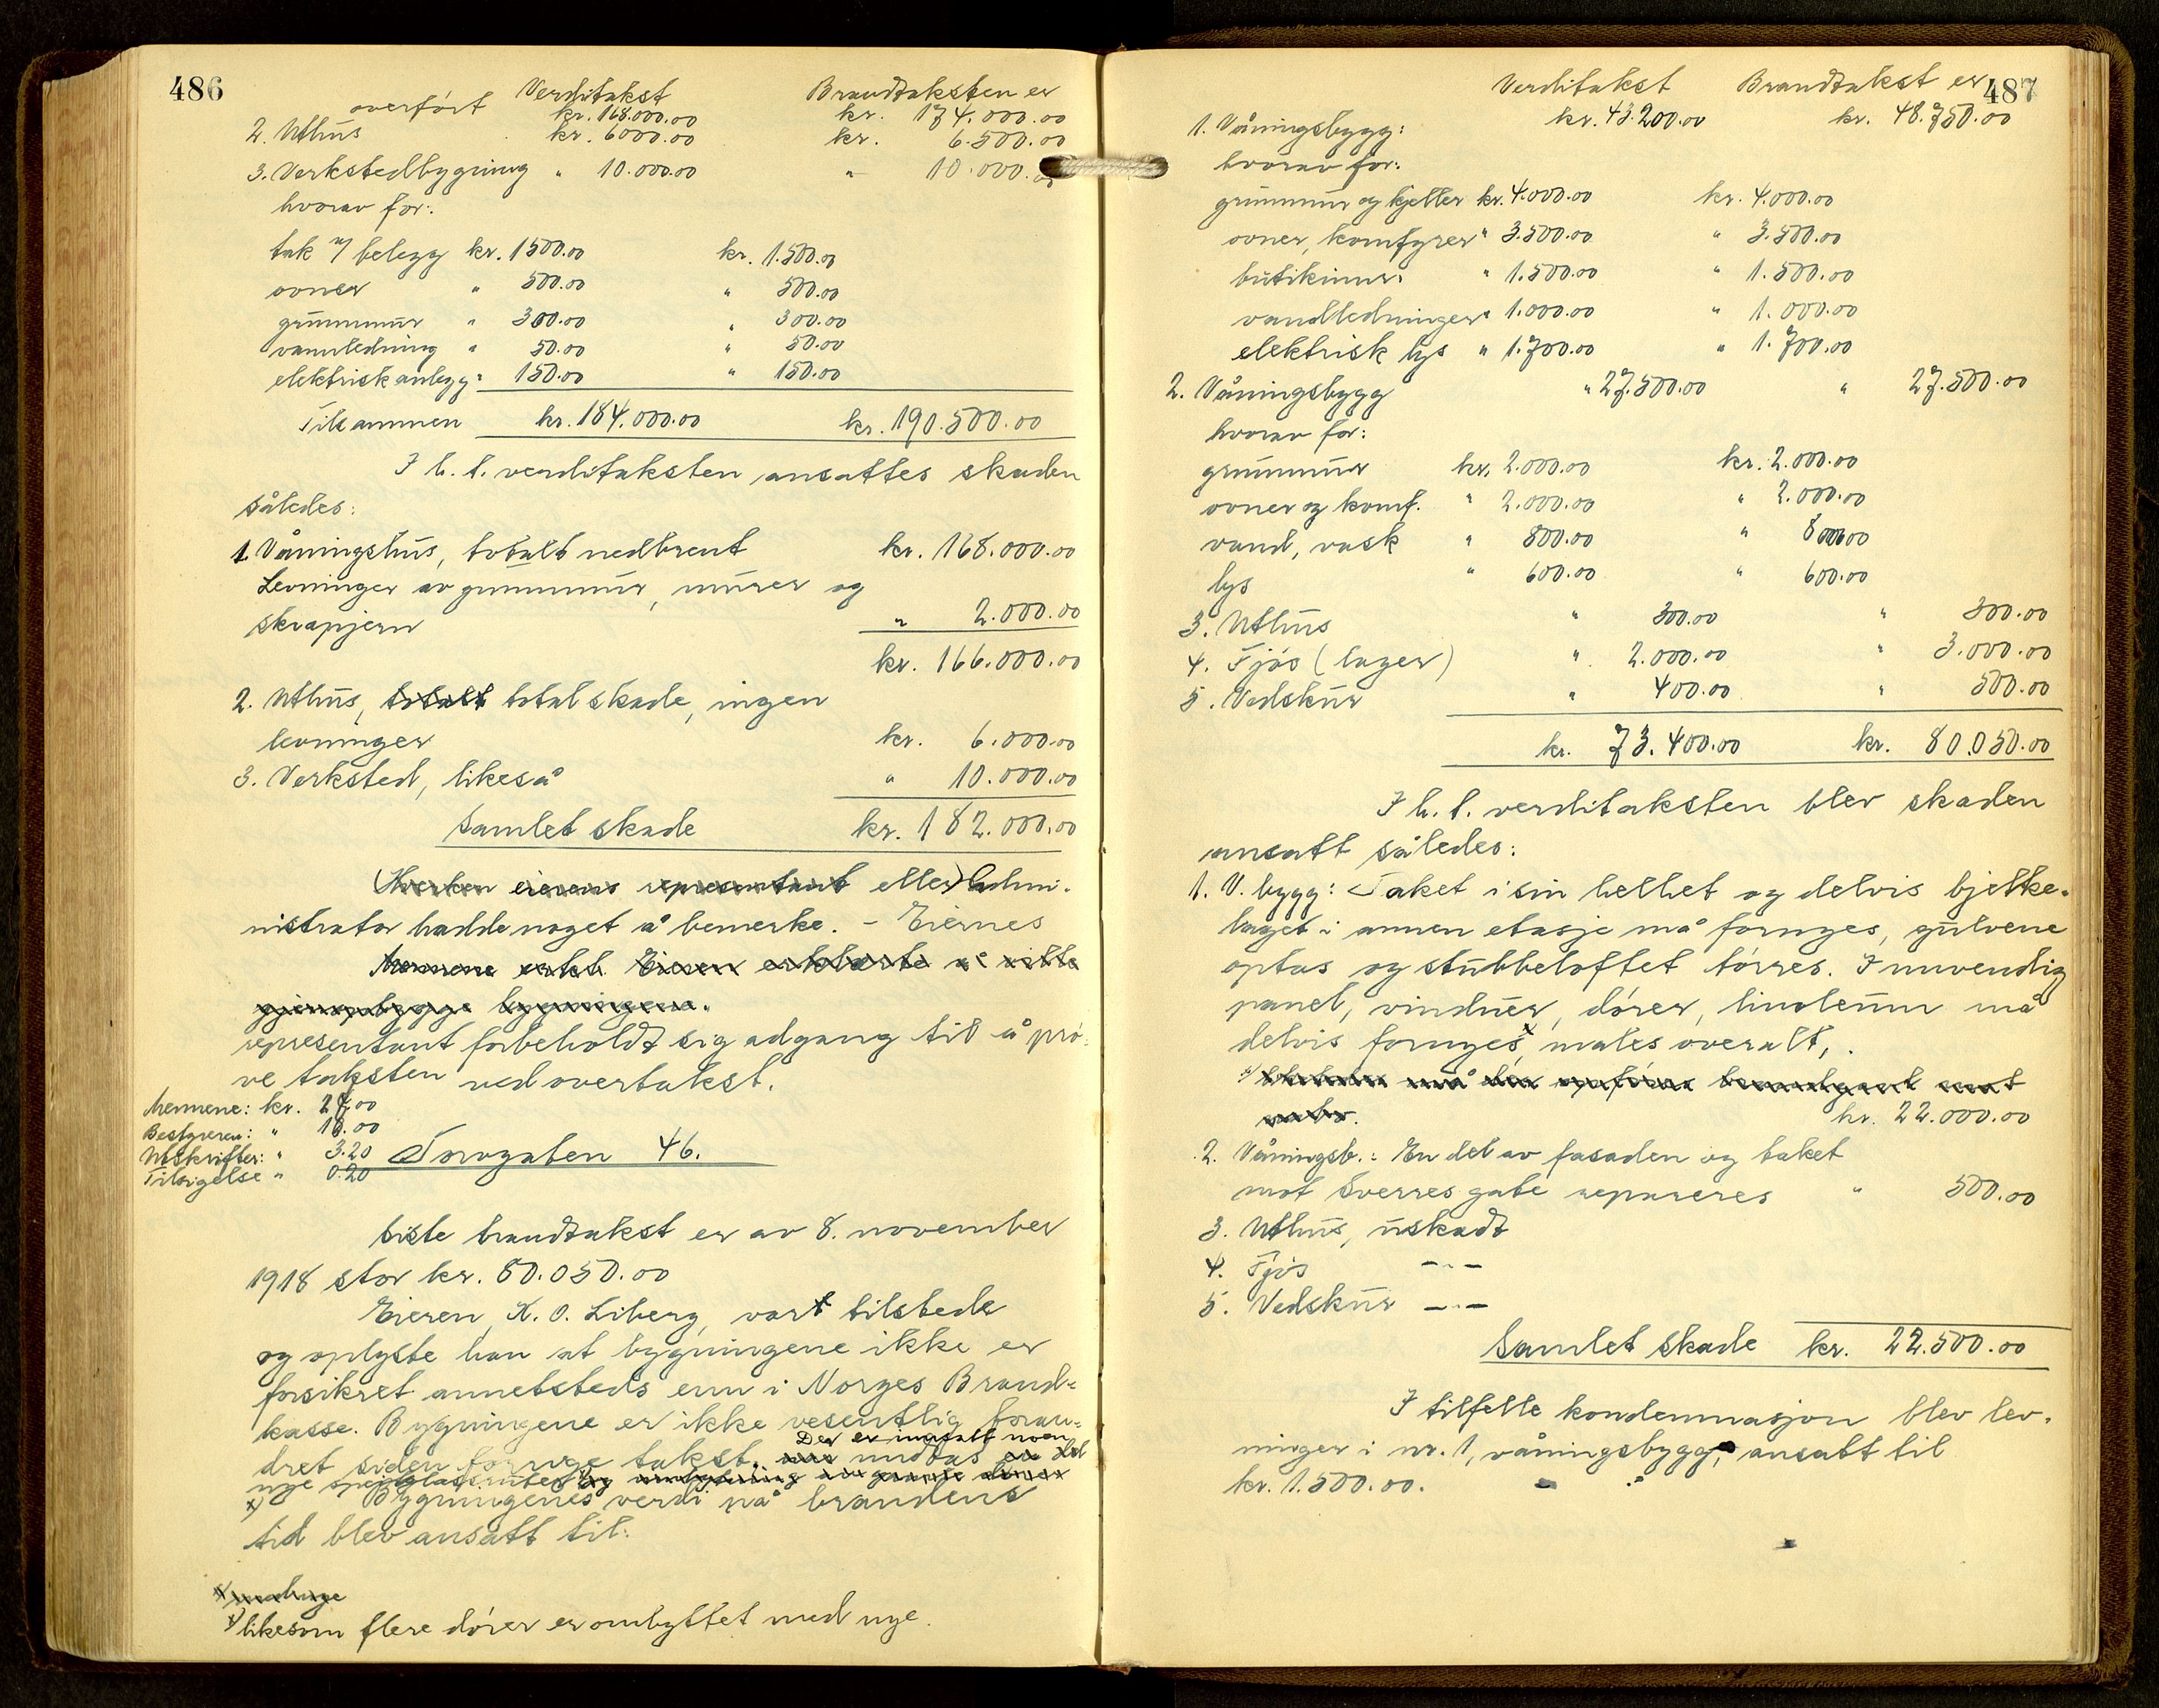 486
Verditakst Brandtaksten er
overført kr. 168.000.00 kr. 174.000.00
2. Uthus kr. 6000.00 kr. 6.500.00
3. Verkstedbygning " 10.000.00 " 10.000.00
hvorav for:
tak m/ belegg kr. 1500.00 kr. 1.500.00
ovner " 500.00 " 500.00
grunnmur " 300.00 " 300.00
vannledning " 50.00 " 50.00
elektrisk anlegg " 150.00 " 150.00
Tilsammen kr. 184.000.00 kr. 190.500.00
I h. t. verditaksten ansattes skaden
således:
1. Våningshus, totalt nedbrent kr. 168.000.00
Levninger av grunnmur, murer og
skrapjern " 2.000.00
kr. 166.000.00
2. Uthus, totalt total skade, ingen
levninger kr. 6.000.00
3. Verksted, likeså " 10.000.00
Samlet skade kr. 182.000.00
(Hverken eierens representant eller) Admi-
nistrator hadde noget å bemerke. - Eiernes
Mennene Eieren erklærte å ville
gjenopbygge bygningene.
representant forbeholdt sig adgang til å prø-
ve taksten ved overtakst.
Mennene: kr. 27.00
Bestyreren: " 18.00
Utskrifter: " 3.20
Tilsigelse " 0.20
Torvgaten 46.
Siste brandtakst er av 8. november
1918 stor kr. 80.050.00
Eieren, K. O. Liberg, vart tilstede
og oplyste han at bygningene ikke er
forsikret annetsteds enn i Norges Brand-
kasse. Bygningene er ikke vesentlig foran-
Der er innsatt noen
dret siden forrige takst. undtas en del
nye speilglassruter og
x) Bygningenes verdi på brandens
tid blev ansatt til:
x) likesom flere dører er ombyttet med nye.
487
Verditakst Brandtakst er
1. Våningsbygg: kr. 43.200.00 kr. 48.750.00
hvorav for:
grunnmur og kjeller kr. 4.000.00 kr. 4.000.00
ovner, komfyrer " 3.500.00 " 3.500.00
butikinnr. " 1.500.00 " 1.500.00
vandledninger " 1.000.00 " 1.000.00
elektrisk lys " 1.700.00 " 1.700.00
2. Våningsbygg " 27.500.00 " 27.500.00
hvorav for:
grunnmur kr. 2.000.00 kr. 2.000.00
ovner og komf. " 2.000.00 " 2.000.00
vand, vask " 800.00 " 800.00
lys " 600.00 " 600.00
3. Uthus " 300.00 " 300.00
4. Fjøs (lager) " 2.000.00 " 3.000.00
5. Vedskur " 400.00 " 500.00
kr. 73.400.00 kr. 80.050.00
I h. t. verditaksten blev skaden
ansatt således:
1. V. bygg: Taket i sin helhet og delvis bjelke-
laget i annen etasje må fornyes, gulvene
optas og stubbeloftet tørres. Innvendig
panel, vinduer, dører, linoleum må
delvis fornyes, males overalt,
kr. 22.000.00
2. Våningsb.: En del av fasaden og taket
mot Sverres gate repareres " 500.00
3. Uthus, uskadt
4. Fjøs -"-
5. Vedskur -"-
Samlet skade kr. 22.500.00
I tilfelle kondemnasjon blev lev-
ninger i nr. 1, våningsbygg, ansatt til
kr. 1.500.00.